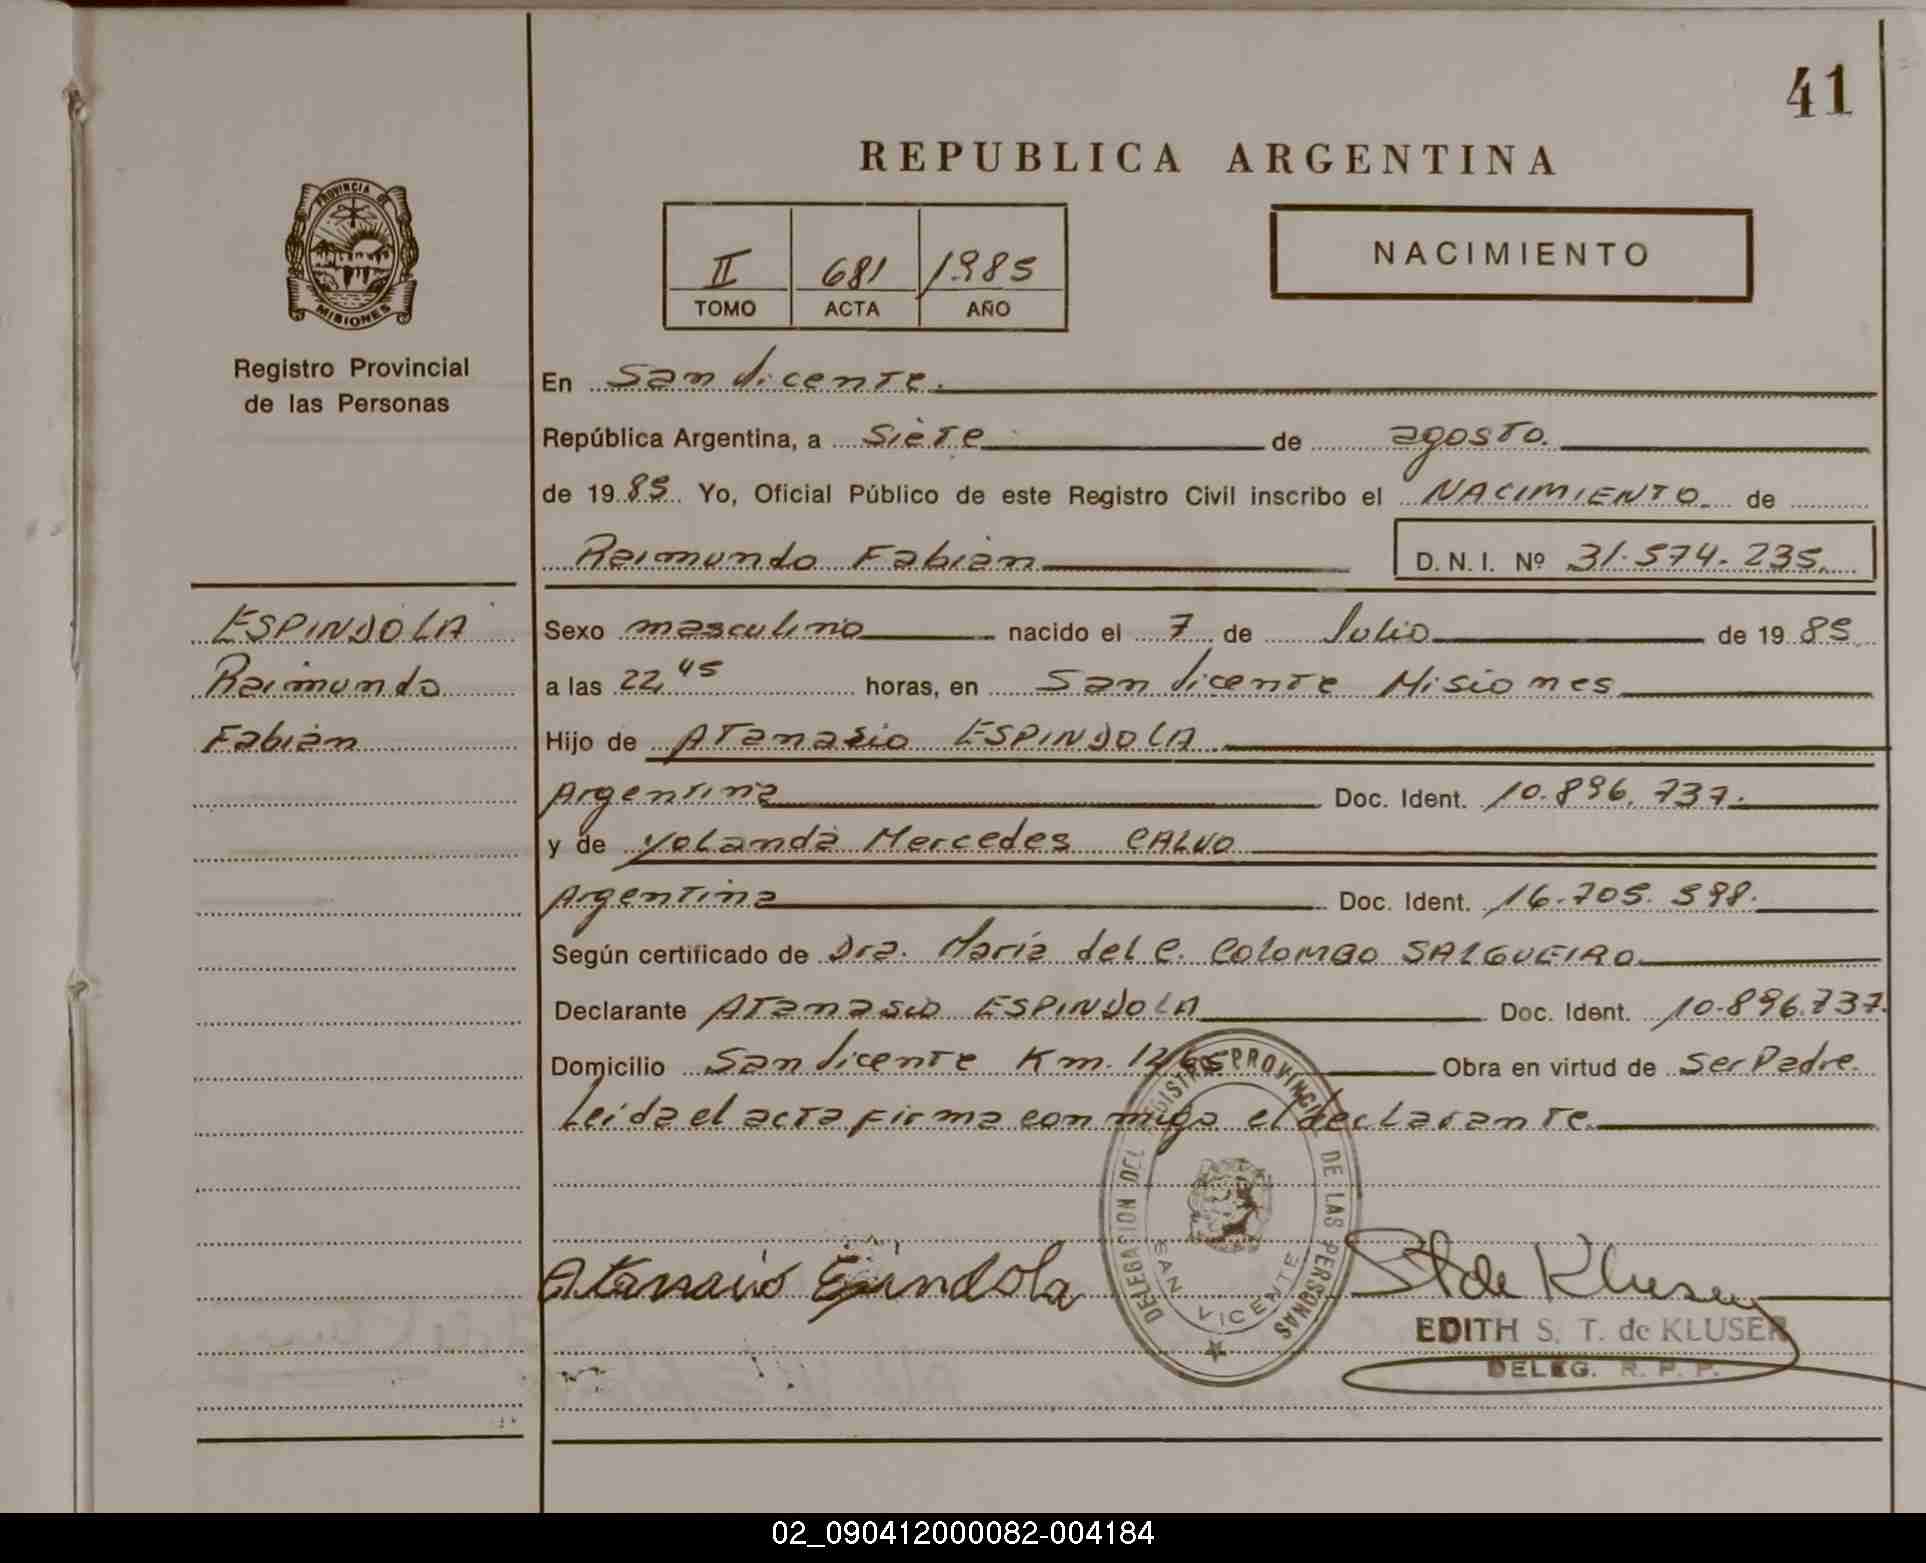 41
REPUBLICA ARGENTINA
PROVINCIA DE
MISIONES
Registro Provincial
de las Personas
II 681 1985
TOMO ACTA AÑO
NACIMIENTO
En San Vicente.
República Argentina, a Siete de agosto.
de 1985 Yo, Oficial Público de este Registro Civil inscribo el NACIMIENTO de
Raimundo Fabián D. N. I. Nº 31.574.235.
ESPINDOLA
Raimundo
Fabián
Sexo masculino nacido el 7 de Julio de 1985
a las 22,45 horas, en San Vicente Misiones
Hijo de Atanasio ESPINDOLA
Argentina Doc. Ident. 10.896.737.
y de Yolanda Mercedes CALVO
Argentina Doc. Ident. 16.705.598.
Según certificado de Dra. María del C. COLOMBO SALGUEIRO
Declarante Atanasio ESPINDOLA Doc. Ident. 10.896.737.
Domicilio San Vicente Km. 1265 Obra en virtud de Ser Padre.
Leida el acta firma conmigo el declarante.
DELEGACION DEL REGISTRO PROVINCIAL DE LAS PERSONAS
SAN VICENTE
Atanasio Espindola
ST de Kluser
EDITH S. T. de KLUSER
DELEG. R. P. P.
02_090412000082-004184